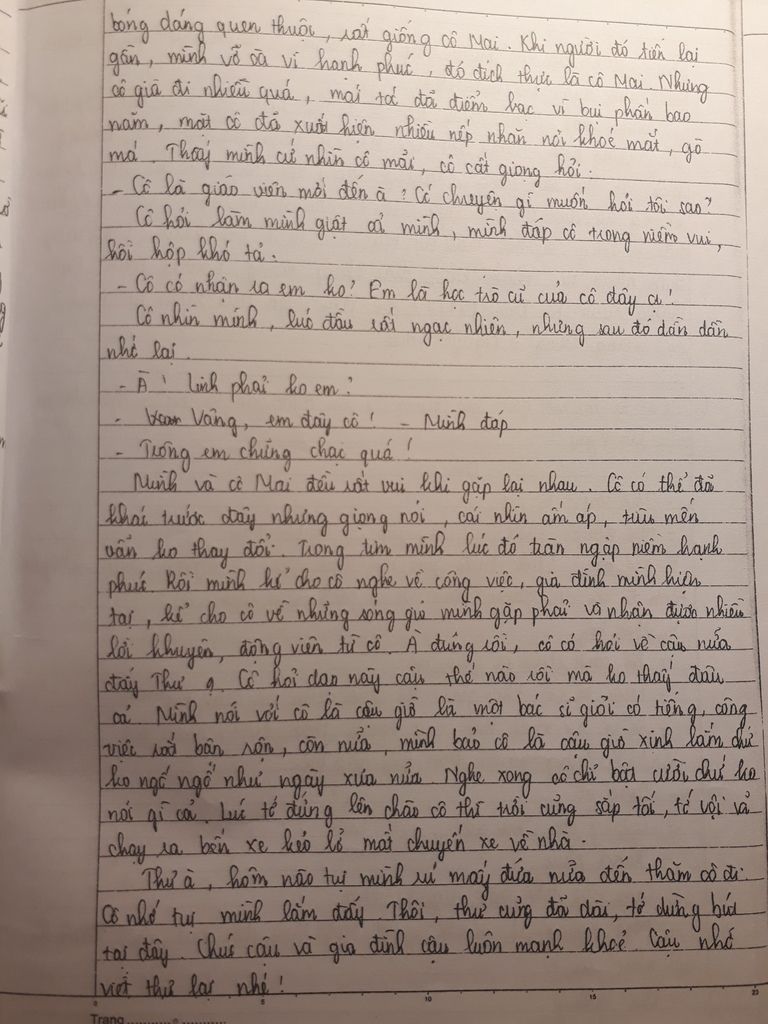 bóng dáng quen thuộc, rất giống cô Mai. Khi người đó tiến lại
gần, mình vỡ oà vì hạnh phúc, đó đích thực là cô Mai. Nhưng
cô già đi nhiều quá, mái tóc đã điểm bạc vì bụi phấn bao
năm, mặt cô đã xuất hiện nhiều nếp nhăn nơi khoé mắt, gò
má. Thấy mình cứ nhìn cô mãi, cô cất giọng hỏi.
- Cô là giáo viên mới đến à? Có chuyện gì muốn hỏi tôi sao?
Cô hỏi làm mình giật cả mình, mình đáp cô trong niềm vui,
hồi hộp khó tả.
- Cô có nhận ra em ko? Em là học trò cũ của cô đây ạ!
Cô nhìn mình, lúc đầu rất ngạc nhiên, nhưng sau đó dần dần
nhớ lại.
- À! Linh phải ko em?
- Vâng, em đây cô! - Mình đáp
- Trông em chững chạc quá!
Mình và cô Mai đều rất vui khi gặp lại nhau. Cô có thể đã
khác trước đây nhưng giọng nói, cái nhìn ấm áp, trìu mến
vẫn ko thay đổi. Trong tim mình lúc đó tràn ngập niềm hạnh
phúc. Rồi mình kể cho cô nghe về công việc, gia đình mình hiện
tại, kể cho cô về những sóng gió mình gặp phải và nhận được nhiều
lời khuyên, động viên từ cô. À đúng rồi, cô có hỏi về cậu nữa
đấy Thư ạ. Cô hỏi dạo này cậu thế nào rồi mà ko thấy đâu
cả. Mình nói với cô là cậu giờ là một bác sĩ giỏi có tiếng, công
việc rất bận rộn, còn nữa, mình bảo cô là cậu giờ xinh lắm chứ
ko ngố ngố như ngày xưa nữa. Nghe xong cô chỉ bật cười chứ ko
nói gì cả. Lúc tớ đứng lên chào cô thì trời cũng sắp tối, tớ vội vã
chạy ra bến xe kẻo lỡ mất chuyến xe về nhà.
Thư à, hôm nào tụi mình rủ mấy đứa nữa đến thăm cô đi.
Cô nhớ tụi mình lắm đấy. Thôi, thư cũng đã dài, tớ dừng bút
tại đây. Chúc cậu và gia đình cậu luôn mạnh khoẻ. Cậu nhớ
viết thư lại nhé!
0 5 10 15 20
Trang